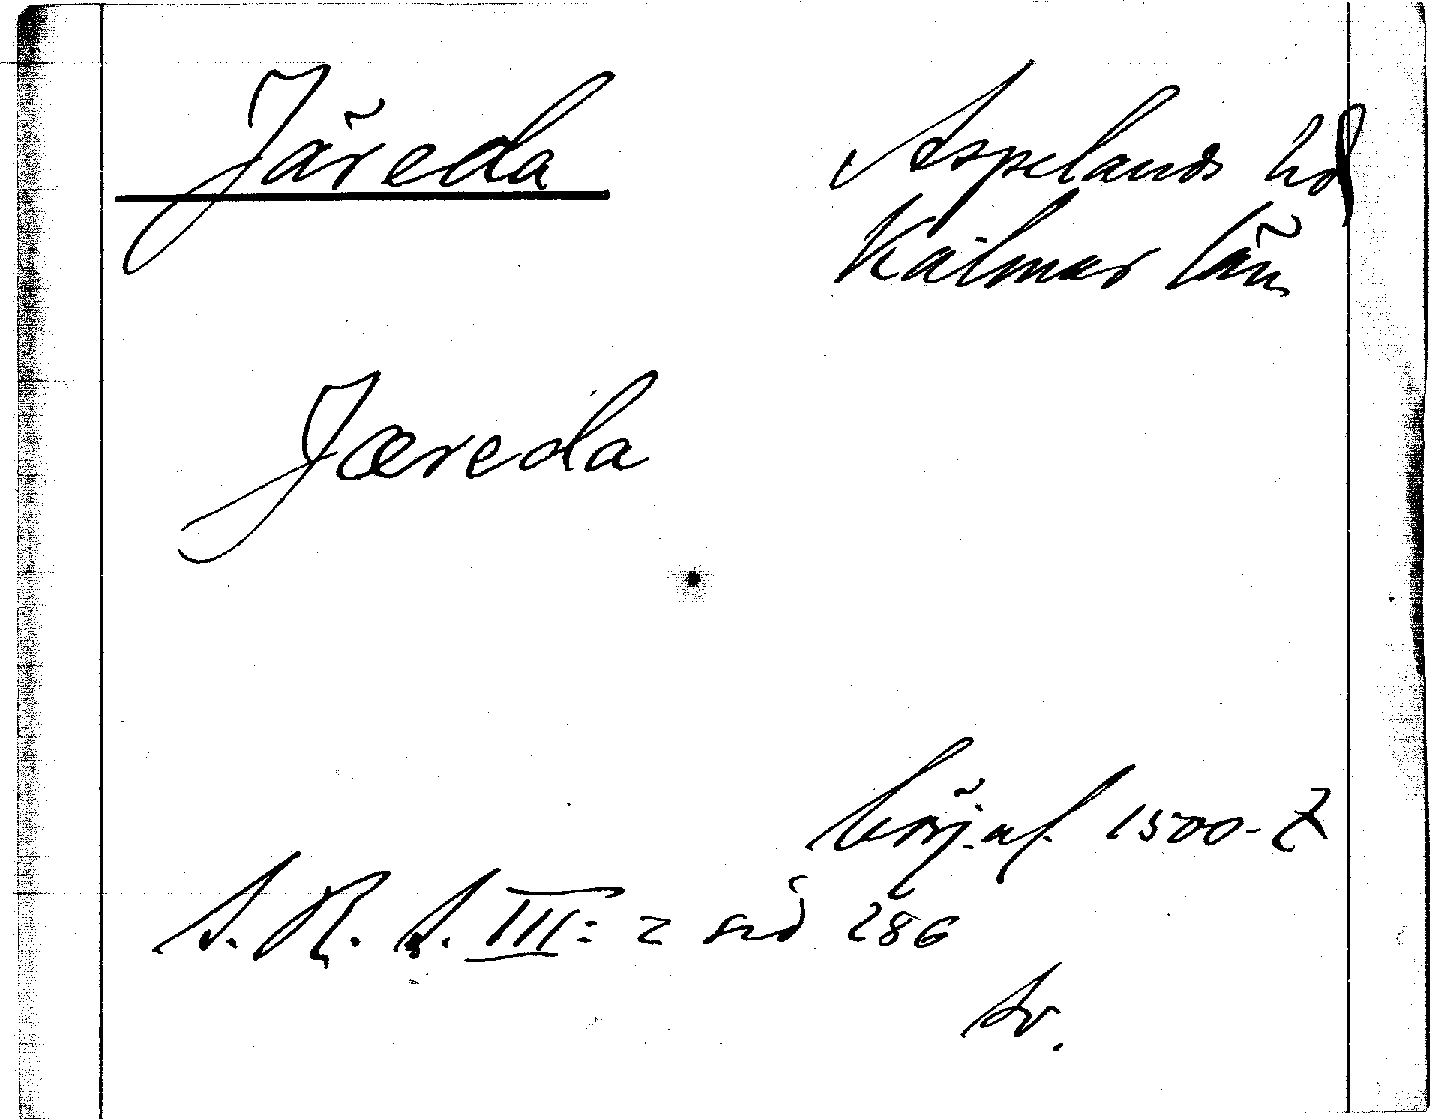 Järeda
Aspelands hd
Kalmar län
Jæreda
börj. af. 1500-t
S. R. S. III: 2 sid 286